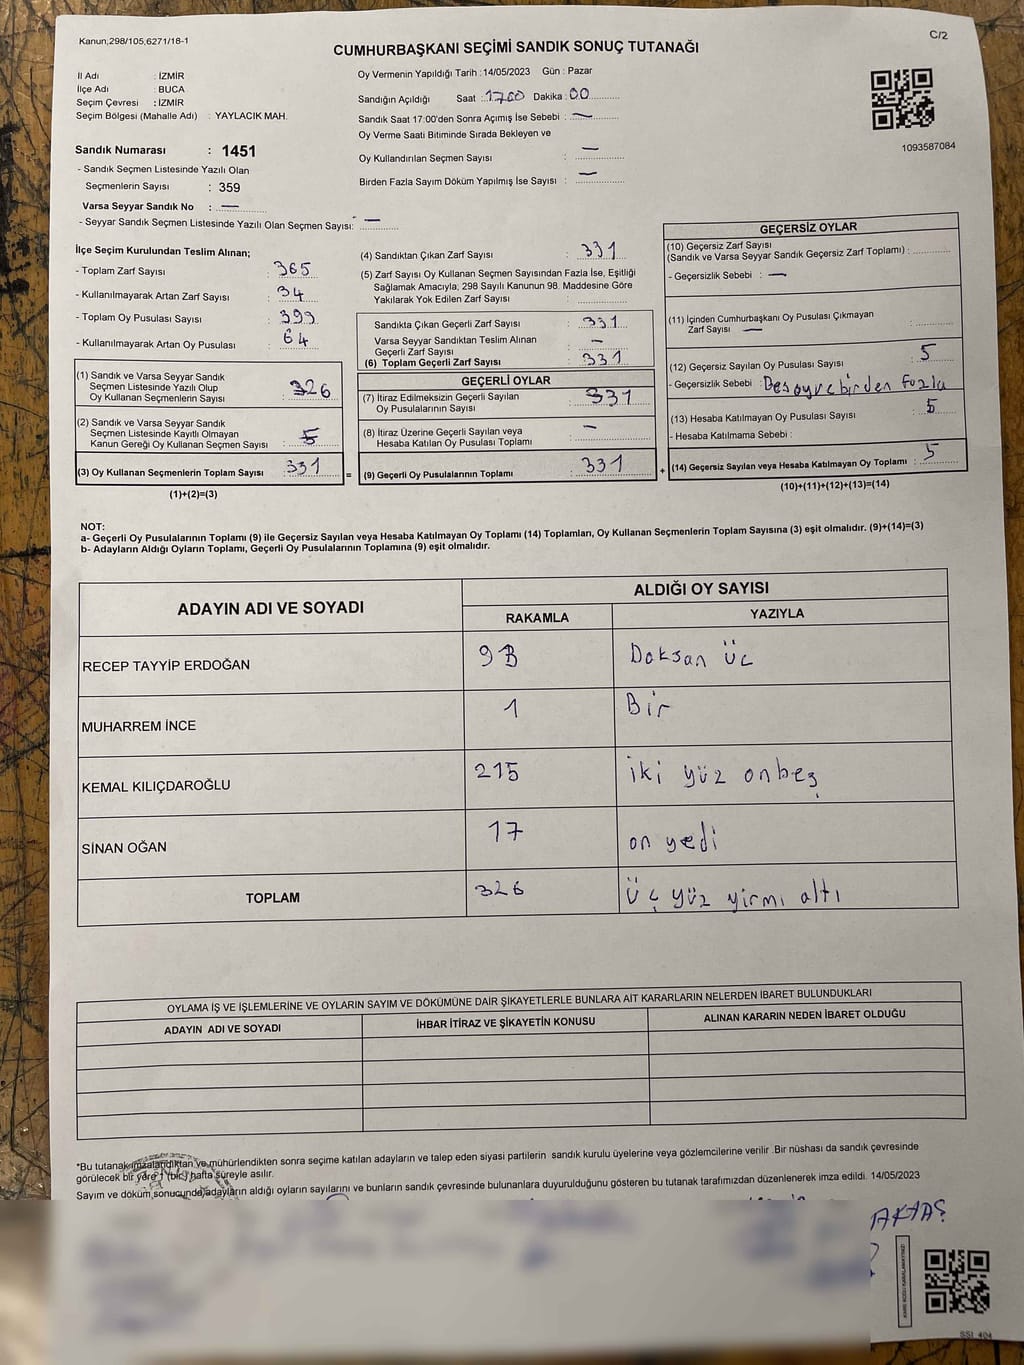 Kanun,298/105,6271/18-1
C/2
CUMHURBAŞKANI SEÇİMİ SANDIK SONUÇ TUTANAĞI
İl Adı : İZMİR
İlçe Adı : BUCA
Seçim Çevresi : İZMİR
Seçim Bölgesi (Mahalle Adı) : YAYLACIK MAH.
Sandık Numarası : 1451
- Sandık Seçmen Listesinde Yazılı Olan
Seçmenlerin Sayısı : 359
Varsa Seyyar Sandık No : —
- Seyyar Sandık Seçmen Listesinde Yazılı Olan Seçmen Sayısı: —
Oy Vermenin Yapıldığı Tarih :14/05/2023 Gün : Pazar
Sandığın Açıldığı Saat : 1700 Dakika : 00
Sandık Saat 17:00'den Sonra Açımış İse Sebebi : —
Oy Verme Saati Bitiminde Sırada Bekleyen ve
Oy Kullandırılan Seçmen Sayısı : —
Birden Fazla Sayım Döküm Yapılmış İse Sayısı : —
1093587084
İlçe Seçim Kurulundan Teslim Alınan;
- Toplam Zarf Sayısı : 365
- Kullanılmayarak Artan Zarf Sayısı : 34
- Toplam Oy Pusulası Sayısı : 399
- Kullanılmayarak Artan Oy Pusulası : 64
(1) Sandık ve Varsa Seyyar Sandık
Seçmen Listesinde Yazılı Olup
Oy Kullanan Seçmenlerin Sayısı : 326
(2) Sandık ve Varsa Seyyar Sandık
Seçmen Listesinde Kayıtlı Olmayan
Kanun Gereği Oy Kullanan Seçmen Sayısı : 5
(3) Oy Kullanan Seçmenlerin Toplam Sayısı 331 =
(1)+(2)=(3)
(4) Sandıktan Çıkan Zarf Sayısı : 331
(5) Zarf Sayısı Oy Kullanan Seçmen Sayısından Fazla İse, Eşitliği
Sağlamak Amacıyla; 298 Sayılı Kanunun 98. Maddesine Göre
Yakılarak Yok Edilen Zarf Sayısı :
Sandıkta Çıkan Geçerli Zarf Sayısı : 331
Varsa Seyyar Sandıktan Teslim Alınan
Geçerli Zarf Sayısı : —
(6) Toplam Geçerli Zarf Sayısı : 331
GEÇERLİ OYLAR
(7) İtiraz Edilmeksizin Geçerli Sayılan
Oy Pusulalarının Sayısı : 331
(8) İtiraz Üzerine Geçerli Sayılan veya
Hesaba Katılan Oy Pusulası Toplamı : —
(9) Geçerli Oy Pusulalarının Toplamı : 331 +
GEÇERSİZ OYLAR
(10) Geçersiz Zarf Sayısı
(Sandık ve Varsa Seyyar Sandık Geçersiz Zarf Toplamı) :
- Geçersizlik Sebebi : —
(11) İçinden Cumhurbaşkanı Oy Pusulası Çıkmayan
Zarf Sayısı — :
(12) Geçersiz Sayılan Oy Pusulası Sayısı : 5
- Geçersizlik Sebebi : Beş oy ve birden fazla
(13) Hesaba Katılmayan Oy Pusulası Sayısı : 5
- Hesaba Katılmama Sebebi :
(14) Geçersiz Sayılan veya Hesaba Katılmayan Oy Toplamı : 5
(10)+(11)+(12)+(13)=(14)
NOT:
a- Geçerli Oy Pusulalarının Toplamı (9) ile Geçersiz Sayılan veya Hesaba Katılmayan Oy Toplamı (14) Toplamları, Oy Kullanan Seçmenlerin Toplam Sayısına (3) eşit olmalıdır. (9)+(14)=(3)
b- Adayların Aldığı Oyların Toplamı, Geçerli Oy Pusulalarının Toplamına (9) eşit olmalıdır.
ADAYIN ADI VE SOYADI
ALDIĞI OY SAYISI
RAKAMLA YAZIYLA
RECEP TAYYİP ERDOĞAN 93 Doksan üç
MUHARREM İNCE 1 Bir
KEMAL KILIÇDAROĞLU 215 iki yüz onbeş
SİNAN OĞAN 17 on yedi
TOPLAM 326 üç yüz yirmi altı
OYLAMA İŞ VE İŞLEMLERİNE VE OYLARIN SAYIM VE DÖKÜMÜNE DAİR ŞİKAYETLERLE BUNLARA AİT KARARLARIN NELERDEN İBARET BULUNDUKLARI
ADAYIN ADI VE SOYADI İHBAR İTİRAZ VE ŞİKAYETİN KONUSU ALINAN KARARIN NEDEN İBARET OLDUĞU
*Bu tutanak imzalandıktan ve mühürlendikten sonra seçime katılan adayların ve talep eden siyasi partilerin sandık kurulu üyelerine veya gözlemcilerine verilir .Bir nüshası da sandık çevresinde
görülecek bir yere 1 (bir) hafta süreyle asılır.
Sayım ve döküm sonucunda adayların aldığı oyların sayılarını ve bunların sandık çevresinde bulunanlara duyurulduğunu gösteren bu tutanak tarafımızdan düzenlenerek imza edildi. 14/05/2023
AKTAŞ
SSI_404